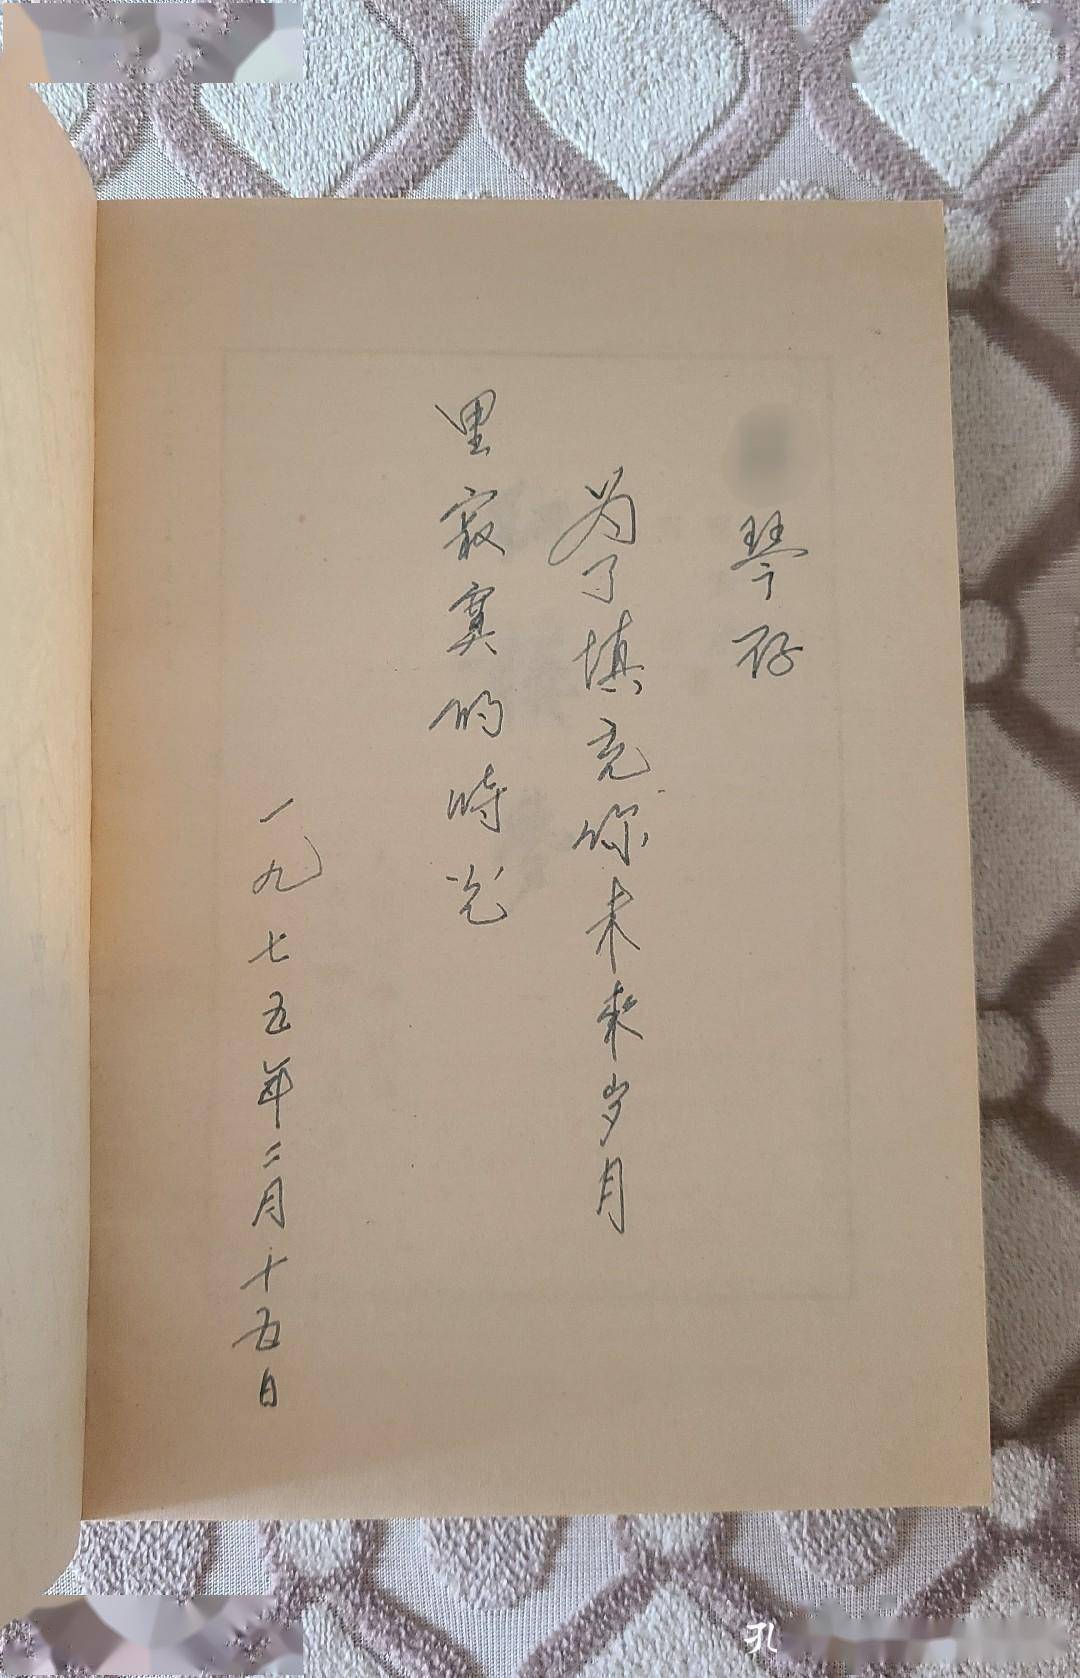 琴存
为了填充你未来岁月
里寂寞的时光
一九七五年二月十五日
孔